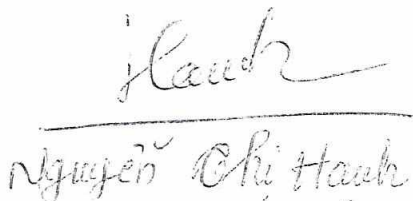 Hanh
Nguyễn Chí Hanh